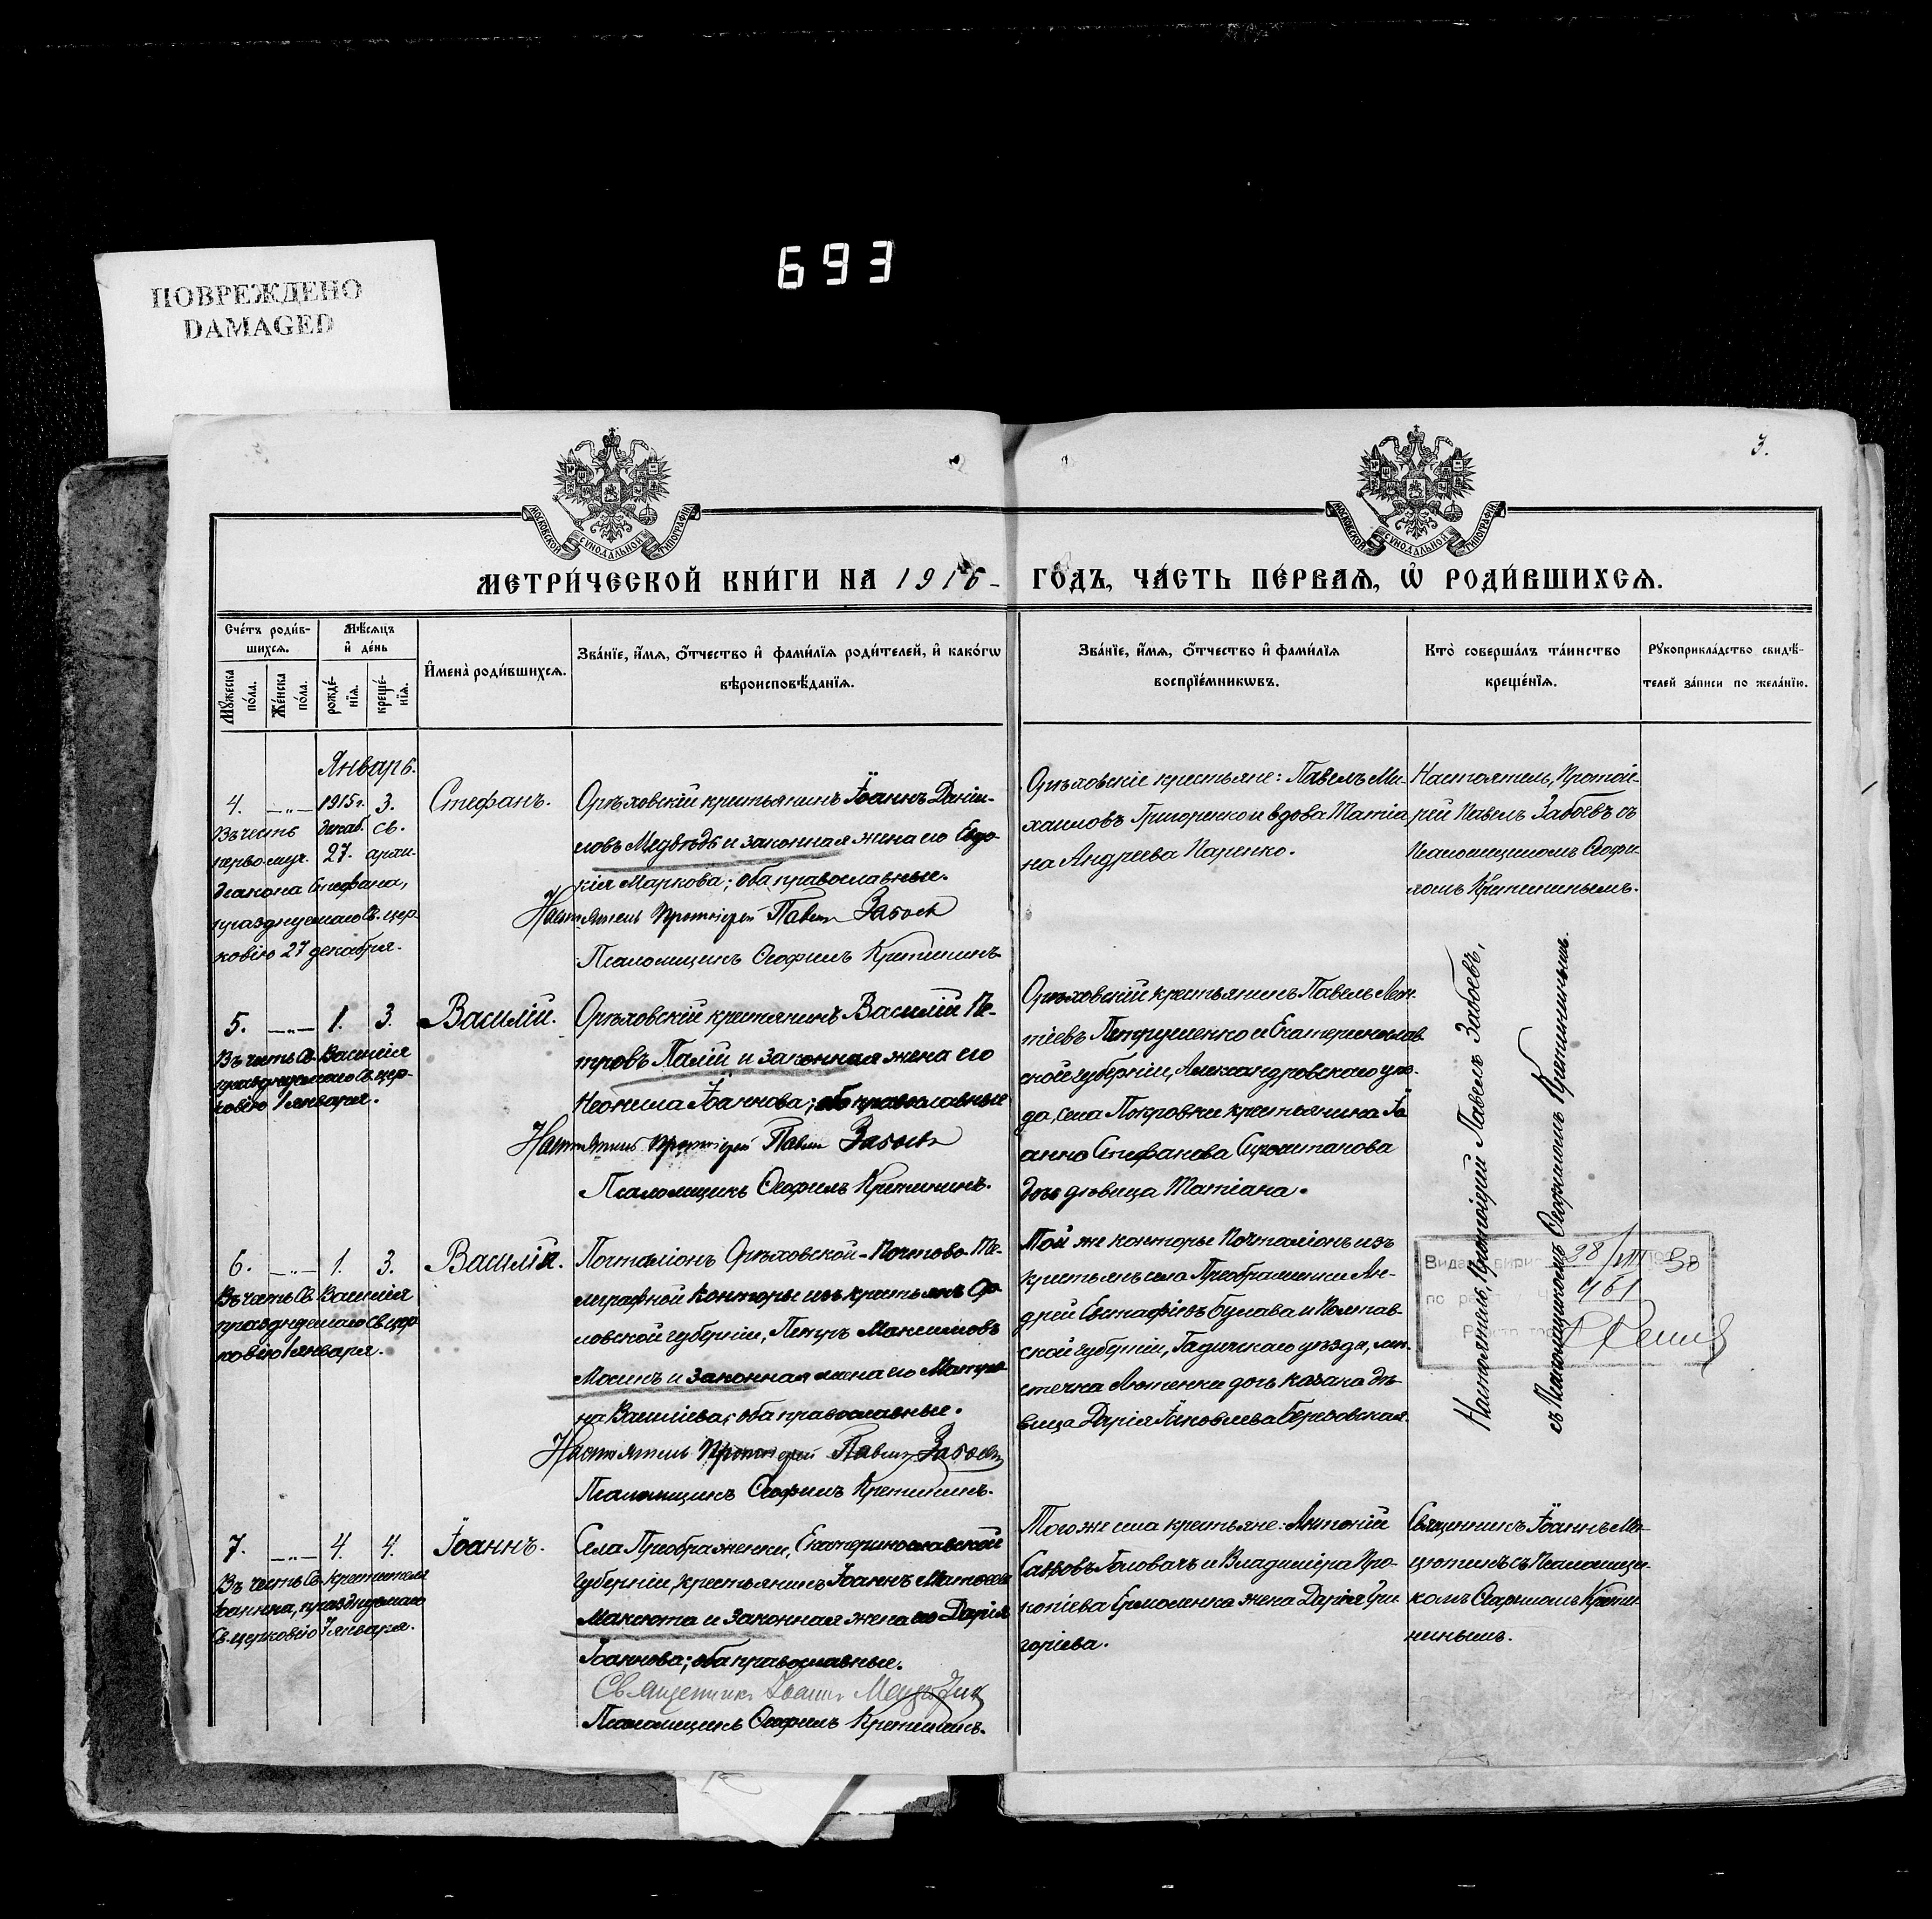 693
ПОВРЕЖДЕНО
DAMAGED
3.
МОСКОВСКОЙ СѴНОДАЛЬНОЙ ТИПОГРАФІИ
МОСКОВСКОЙ СѴНОДАЛЬНОЙ ТИПОГРАФІИ
МЕТРИ́ЧЕСКОЙ КНИ́ГИ НА 1916 ГО́ДЪ, ЧА́СТЬ ПЕ́РВАѦ, Ѡ҆ РОДИ́ВШИХСѦ.
Сче́тъ роди́в-
шихсѧ.
Мꙋ́жеска по́ла.
Же́нска по́ла.
Мѣ́сѧцъ
и҆ де́нь
рожде́-
нїѧ.
креще́-
нїѧ.
И҆мена̀ роди́вшихсѧ.
Зва́нїе, и҆́мѧ, ѻ҆́тчество и҆ фами́лїѧ роди́телей, и҆ како́гѡ
вѣроисповѣ́данїѧ.
Зва́нїе, и҆́мѧ, ѻ҆́тчество и҆ фами́лїѧ
воспрїе́мникѡвъ.
Кто̀ соверша́лъ та́инство
креще́нїѧ.
Рꙋкоприкла́дство свидѣ́-
телей за́писи по жела́нїю.
Январь.
4. —„— 1915 г. 3.
Въ честь Декаб. св.
первомуч. 27. архи-
диакона Стефана,
празднуемаго Св. цер-
ковію 27 декабря.
Стефанъ.
Орѣховскій крестьянинъ Іоаннъ Даніи-
ловъ Медвѣдь и законная жена его Евдо-
кія Маркова; оба православные.
Настоятель Протоіерей Павелъ Забоевъ
Псаломщикъ Ѳеофилъ Кретининъ.
Орѣховскіе крестьяне: Павелъ Ми-
хаиловъ Григоренко и вдова Татіа
на Андреева Паренко.
Настоятель, Протоіе-
рей Павелъ Забоевъ съ
Псаломщикомъ Ѳеофи-
ломъ Кретининымъ.
5. —„— 1. 3.
Въ честь Св. Василія
празднуемаго Св. цер-
ковію 1 января.
Василій.
Орѣховскій крестьянинъ Василій Пе-
тровъ Палій и законная жена его
Неонила Іоаннова; оба православные
Настоятель Протоіерей Павелъ Забоевъ
Псаломщикъ Ѳеофилъ Кретининъ.
Орѣховскій крестьянинъ Павелъ Леон-
тіевъ Петрушенко и Екатеринослав
ской губерніи, Александровскаго уѣз-
да, села Покровки крестьянина Іо
анна Стефанова
дочь дѣвица Татіана.
Настоятель, Протоіерей Павелъ Забоевъ,
съ Псаломщикомъ Ѳеофиломъ Кретининымъ.
6. —„— 1. 3.
Въ честь Св. Василія
празднуемаго Св. цер-
ковію 1 января.
Василій.
Почталіонъ Орѣховской-Почтово-Те-
леграфной Конторы изъ крестьянъ Ор-
ловской губерніи, Петръ Максимовъ
Мосинъ и законная жена его Матро-
на Василіева; оба православные.
Настоятель Протоіерей Павелъ Забоевъ
Псаломщикъ Ѳеофилъ Кретининъ.
Той же конторы Почталіонъ изъ
крестьянъ села Преображенки Ан-
дрей Евстафіевъ Булава и Полтав-
ской губерніи, Гадячскаго уѣзда, мѣ-
стечка Лютенки дочь казака дѣ-
вица Дарія Іаковлева Березовская.
28/VIII 38
461
7. —„— 4. 4.
Въ честь Св. Крестителя
Іоанна, празднуемаго
Св. церковію 7 января.
Іоаннъ.
Села Преображенки, Екатеринославской
губерніи, крестьянинъ Іоаннъ Матѳеевъ
Макюта и законная жена его Дарія
Іоаннова; оба православные.
Священникъ Іоаннъ
Псаломщикъ Ѳеофилъ Кретининъ.
Того же села крестьяне: Антоній
Саввовъ Головачъ и Владиміра Про-
копіева Ермоленка жена Дарія Гри
горіева.
Священникъ Іоаннъ
съ Псаломщи-
комъ Ѳеофиломъ Крети-
нинымъ.